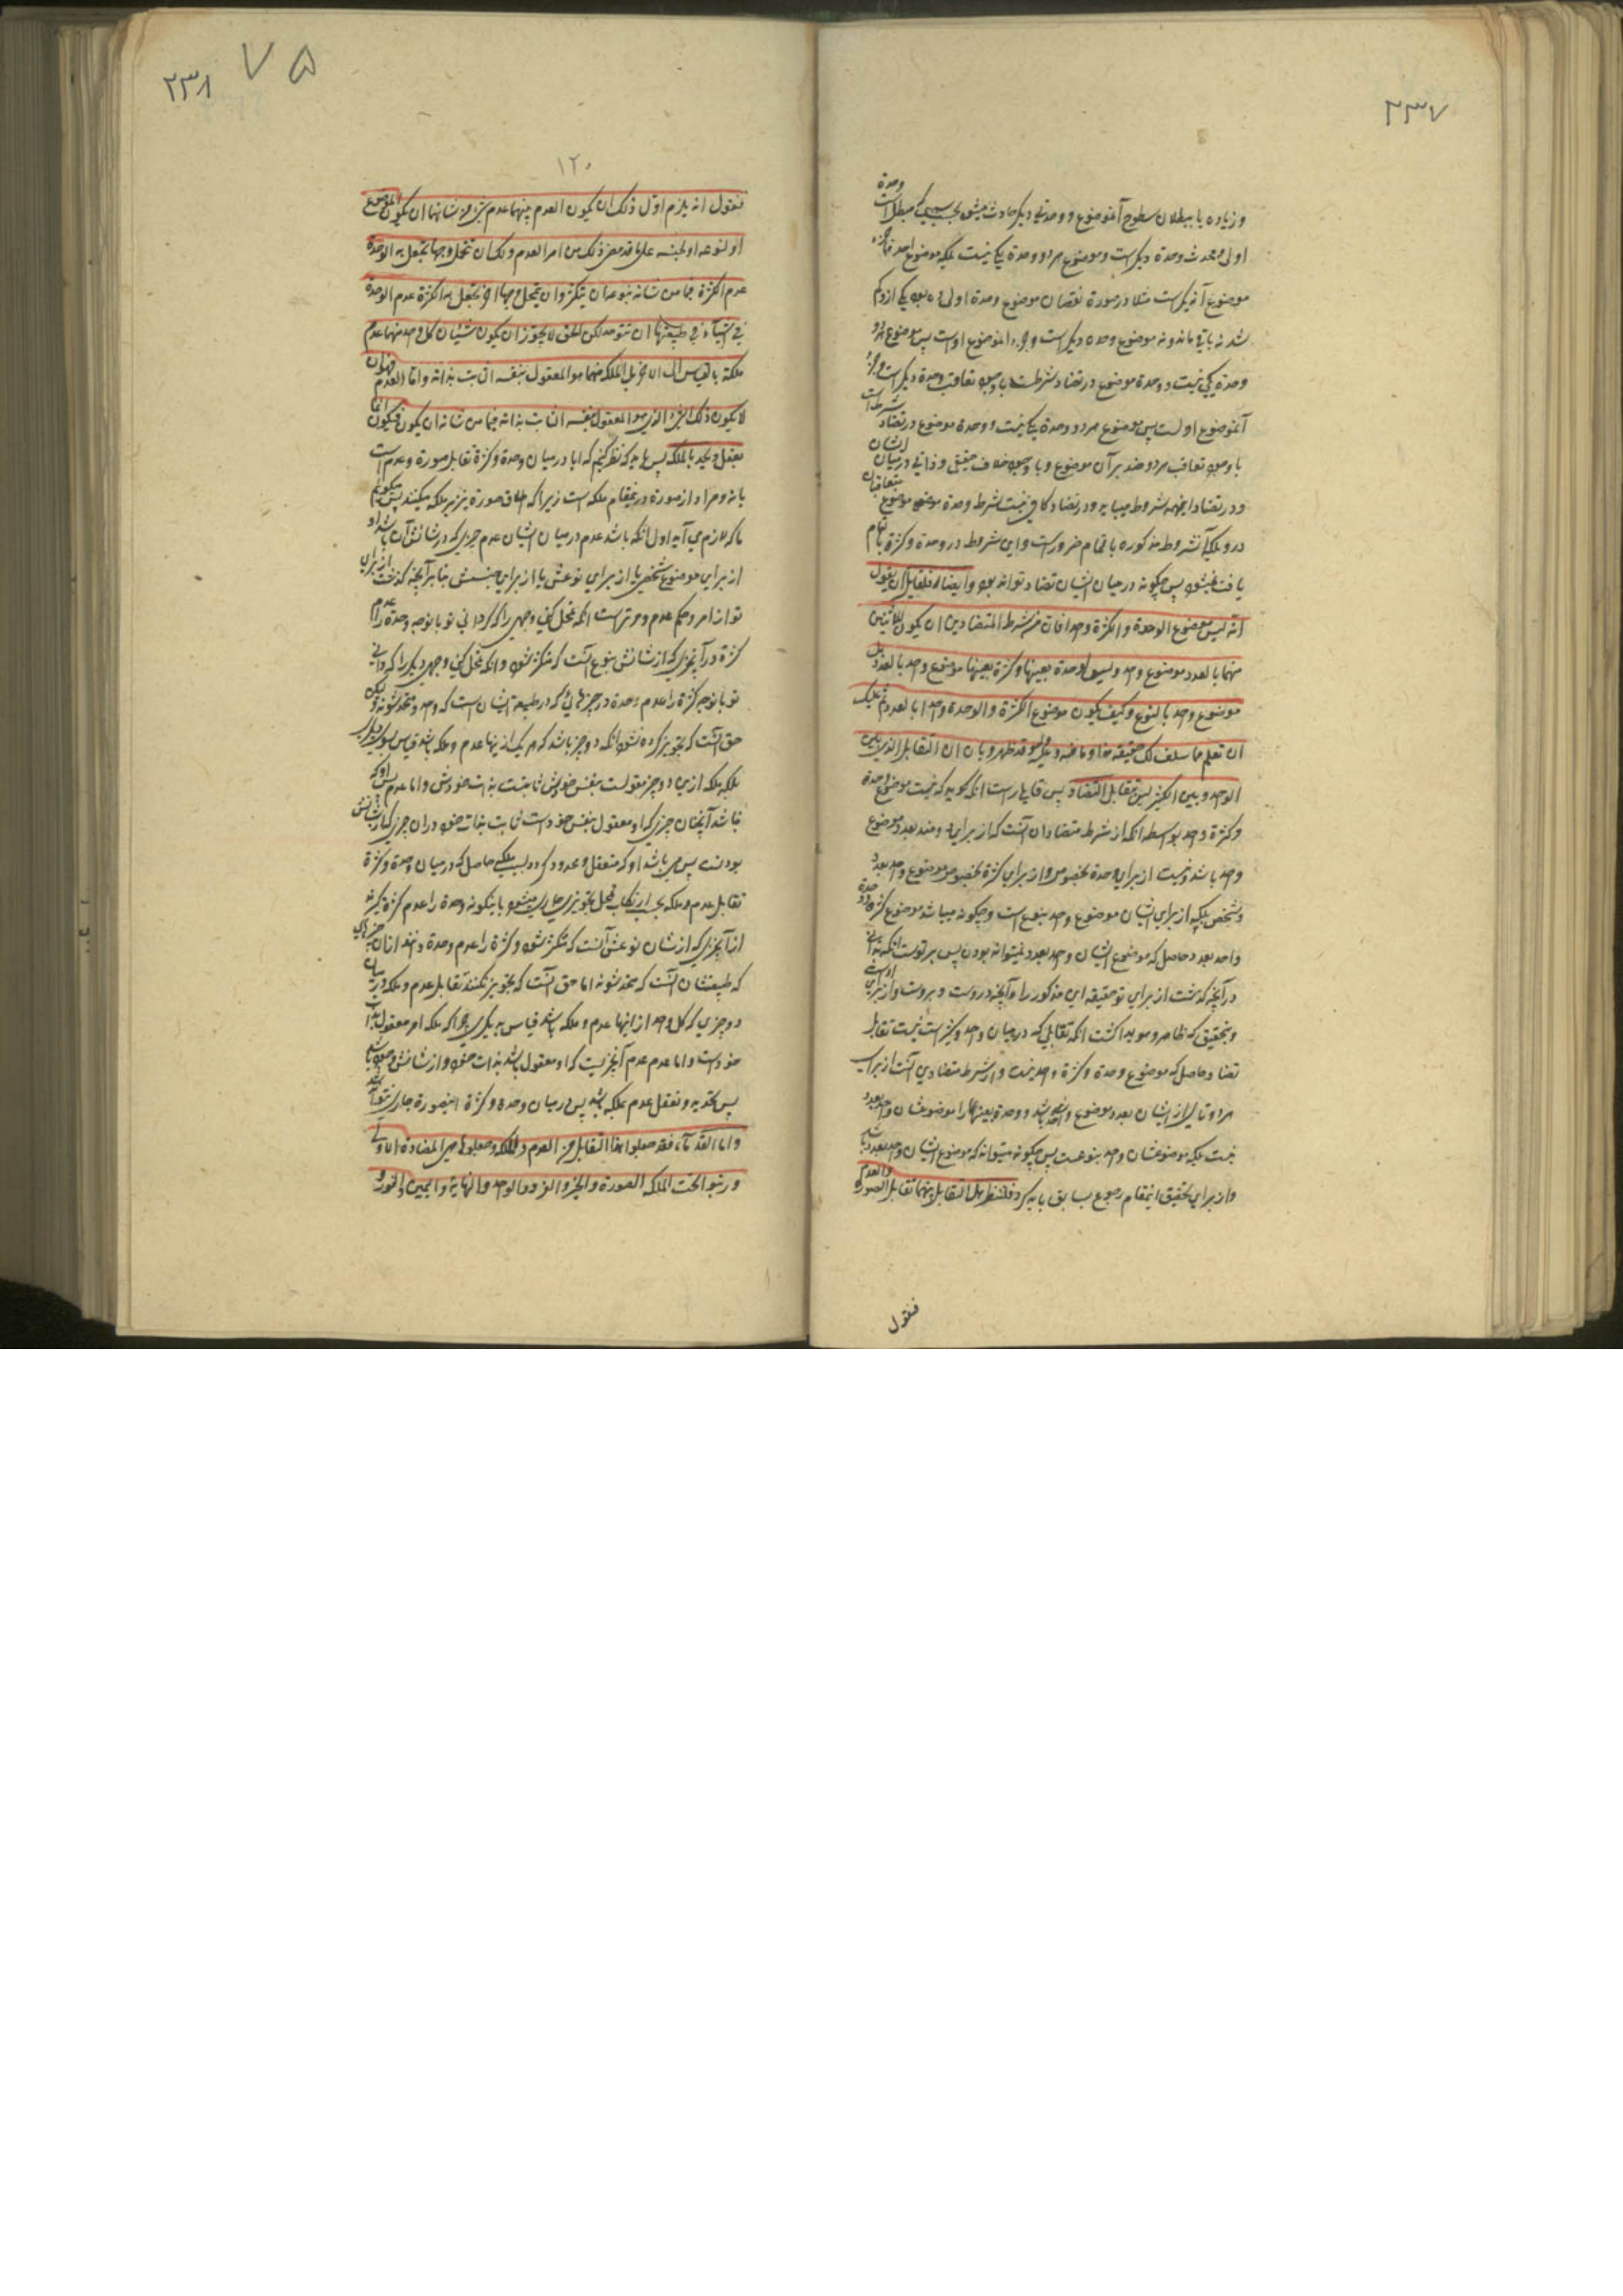 ۲۳۷
وحدة
و زیاده یا ببطلان سطوح آنموضوع و وحدتی دیگر حادث میشود بحسب سببی که مبطل است
اولی و محدث وحدة دیگر است و موضوع هر دو وحدة یکی نیست بلکه موضوع احدهما جزء
موضوع آن دیگر است مثلا در صورة نقصان موضوع وحدة اولی ده بود یکی از او کم
شد نه باقی ماند و نه موضوع وحده دیگر است و جزء الموضوع او است پس موضوع هر دو
وحدة یکی نیست و وحدة موضوع در تضاد شرطست با وجود تعاقب وحدة دیگر است و جزء
آنموضوع اولست پس موضوع هر دو وحدة یکی نیست و وحدة موضوع در تضاد شرط است
با وجود تعاقب هر دو ضد بر آن موضوع و با وجود خلاف حقیقی و ذاتی در میان ایشان
و در تضاد اینهمه شروط میباید و در تضاد کافی نیست شرط وحدة موضوع متعاقبان
در و بلکه آنشروط مذکوره با تمام ضرورست و این شروط در وحدة و کثرة با تمام
یافت نمیشود پس چگونه در میان ایشان تضاد تواند بود وایضا فلقایل ان یقول
انه لیس موضوع الوحدة و الکثرة واحدا فان من شرط المتضادین ان یکون للاثنین
منهما بالعدد موضوع واحد و لیس لوحدة بعینها و کثرة بعینها موضوع واحد بالعدد بل
موضوع واحد بالنوع و کیف یکون موضوع الکثرة و الوحدة واحدا بالعدد ثم علیک
ان تعلم مما سلف لک حقیقه هذا و ما فیه و علیه و له فقد ظهر و بان ان التقابل الذی بین
الواحد و بین الکثیر لیس تقابل التضاد پس قایل راست انکه گوید که نیست موضوع وحدة
و کثرة واحد بواسطه انکه از شرط متضادان آنست که از برای دو ضد بعدد موضوع
واحد باشد و نیست از برای وحدة بخصوص و از برای کثرة بخصوص موضوع واحد بعدد
و شخص بلکه از برای ایشان موضوع واحد بنوع است و چگونه میباشد موضوع کثرة و وحدة
واحد بعدد حاصل که موضوع ایشان واحد بعدد نمیتواند بودن پس بر توست انکه بدانی
در آنچه گذشت از برای تو حقیقه این مذکور را و آنچه در وست و بر وست و از برای اوست
و بتحقیق که ظاهر و هویدا گشت انکه تقابلی که در میان واحد و کثیر است نیست تقابل
تضاد حاصل که موضوع وحدة و کثرة واحد نیست و از شرط متضادی آنست از برای
هر دو تالی از ایشان بعدد موضوع واحد باشد و وحدة بعینها را موضوعشان واحد بعدد
نیست بلکه موضوعشان واحد بنوعست پس چگونه میتواند که موضوع ایشان واحد بعدد باشد
و از برای تحقیق اینمقام رجوع بسابق باید کرد فلننظر هل التقابل بینهما تقابل الصورة والعدم
فنقول
۲۳۸ ۷۵
۱۲۰
فنقول انه یلزم اول ذلک ان یکون العدم منهما عدم شیء من شانه ان یکون للموضوع
او لنوعه او لجنسه علی ما قد مضی ذلک من امر العدم و لک ان تمحل وجها تجعل به الوحدة
عدم الکثرة فیما من شانه بنوعه ان یتکثر و ان تمحل وجها اخر تجعل به الکثرة عدم الوحدة
فی اشیآء فی طبیعتها ان تتوحد لکن الحق لا یجوز ان یکون شیئان کل واحد منهما عدم
ملکة بالقیاس الی الاخر بل الملکة منهما هو المعقول بنفسه الثابت بذاته و اما العدم فهو ان
لا یکون ذلک الشیء الذی هو المعقول بنفسه الثابت بذاته فیما من شانه ان یکون فیکون انما
یعقل و یحد بالملکة پس باید که نظر کنیم که ایا در میان وحدة و کثرة تقابل صورة و عدم است
یا نه و مراد از صورة درینمقام ملکه است زیرا که اطلاق صورة نیز بر ملکه میکنند پس میگوئیم
ما که لازم می آید اول انکه باشد عدم در میان ایشان عدم چیزی که در شانش آن باشد او
از برای موضوع شخصی یا از برای نوعش یا از برای جنسش بنا بر آنچه گذشت از برای
تو از امر و حکم عدم و مر تراست انکه تمحل کنی وجهی را که گردانی تو بانوجه وحدة را عدم
کثرة در آنچیزی که از شانش بنوع آنست که متکثر شود و انکه تمحل کنی وجهی دیگر را که گردانی
تو بانوجه کثرة را عدم وحدة در چیزهائی که در طبیعة ایشان است که واحد و متحد شوند و لیکن
حق آنست که تجویز کرده نشود انکه دو چیز باشد که هر یک از اینها عدم و ملکه باشد بقیاس بسوی دیگر
بلکه ملکه ازین دو چیز معقولست بنفس خویش ثابتست بذات خودش و اما عدم پس او آنکه
نباشد آنچنان چیزی که او معقول بنفس خود است ثابت بذات خود در ان چیزی که از شانش
بودنست پس می باشد او که متعقل و محدود گردد بسبب ملکه حاصل که در میان وحدة و کثرة
تقابل عدم و ملکه بحسب ارتکاب تمحل تجویزی جاری میشود باینگونه وحدة را عدم کثرة گیرند
از آنچیزی که از شان نوعش آنست که متکثر شود و کثرة را عدم وحدة دانند از آن چیزهای
که طبیعتشان آنست که متحد شوند اما حق آنست که تجویز نکنند تقابل عدم و ملکه در میان
دو چیزی که کل واحد از اینها عدم و ملکه باشد قیاس به یکدیگر چرا که ملکه امر معقول بذات
خود است و اما عدم عدم آنچیزیست که او معقول باشد بذات خود و از شانش وجود باشد
پس تحدید و تعقل عدم بملکه باشد پس در میان وحدة و کثرة اینصورة جاری نتواند شد
و اما القدمآء فقد جعلوا هذا التقابل من العدم و الملکة و جعلوها هی المضادة الاولی
و رتبوا تحت الملکة الصورة و الخیر و الفرد و الواحد و النهایة و الیمین و النور و